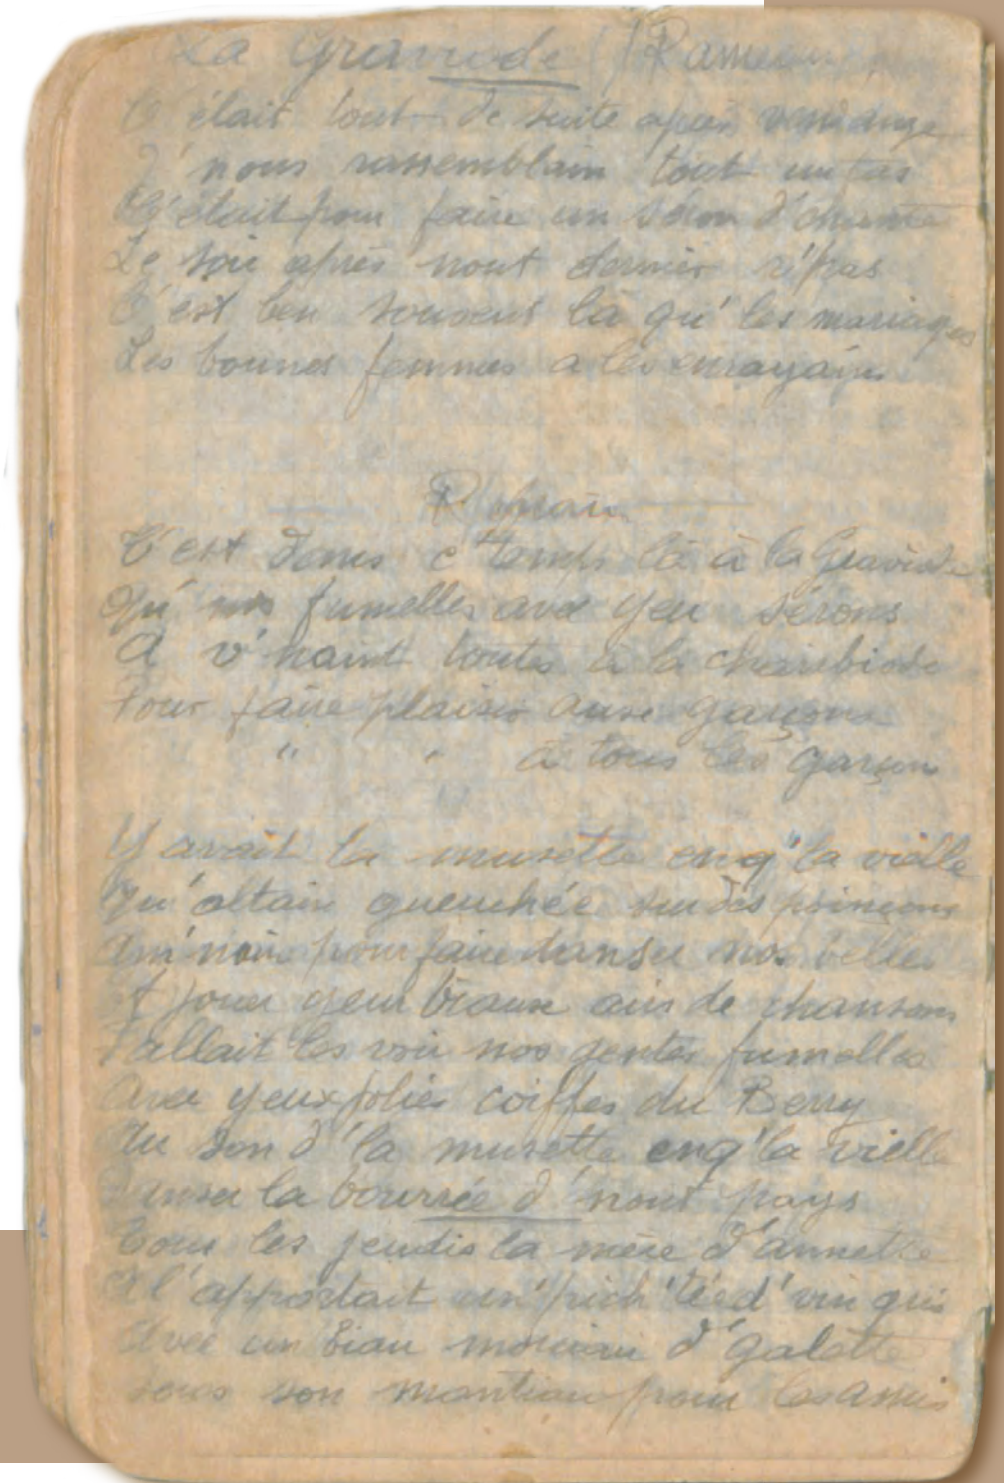 La Graviode (
C'était tout de suite après vendange
J'nous rassemblain tout un tas
C'était pour faire un séron d'chant
Le soir après nout dernier r'pas
C'est ben souvent là qu'les mariages
Les bounes femmes a les
Refrain
C'est dans c'temps là à la Graviode
Qu'nos fumelles avé yeu sérons
A v'naint toutes à la
Pour faire plaisir aux garçons
" " à tous les garçons
Y avait la musette enq'la vielle
Qu'étain queuchée su des poinçons
pour faire danser nos belles
Et jouer yeux biaux airs de chansons
Fallait les voir nos gentes fumelles
Avec yeux jolies coiffes du Berry
Au son d'la musette enq'la vielle
Danser la bourrée d'nout pays
Tous les jeudis la mère d'annette
A l'apportait un'pich'tée d'vin gris
Avec un biau morciau d'galette
sous son mantiau pour les amis